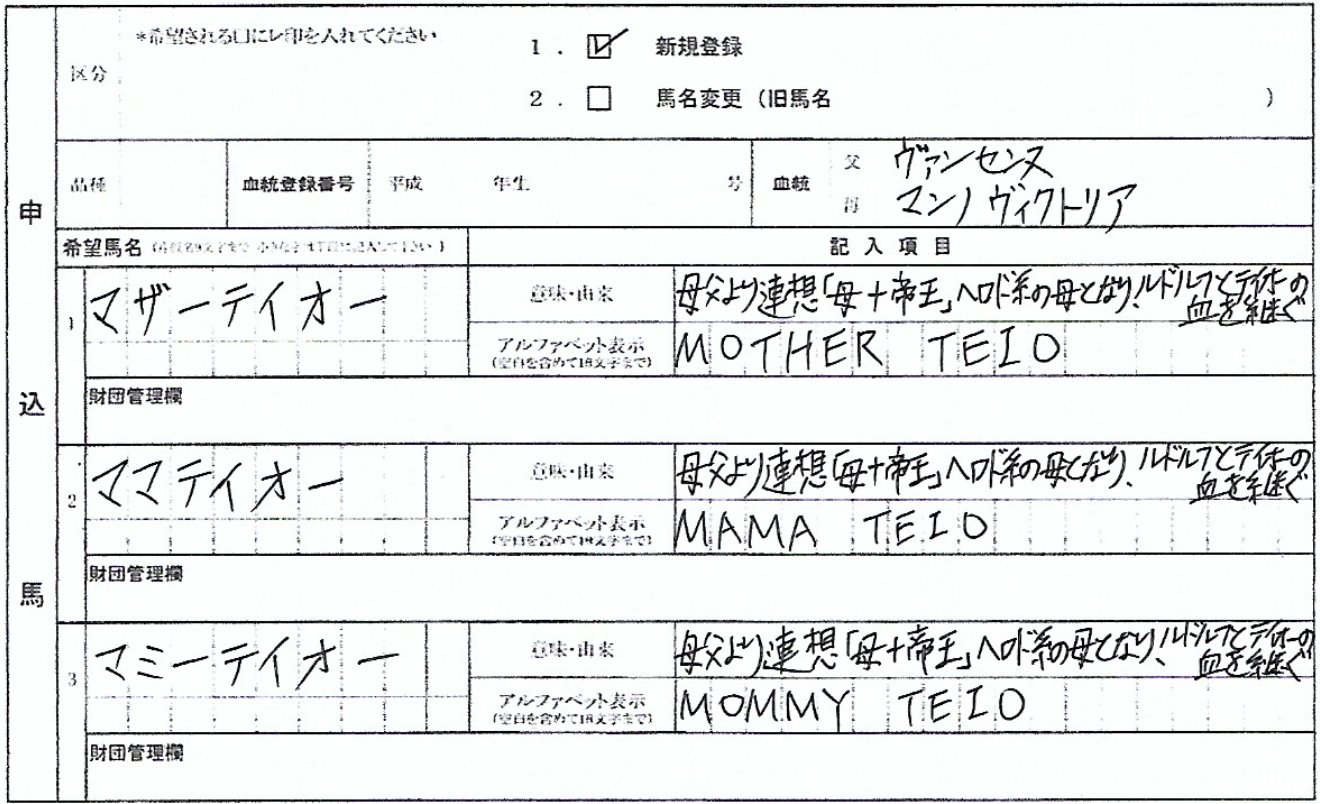 *希望される□にレ印を入れてください
1. ☑ 新規登録
区分
2. □ 馬名変更（旧馬名 ）
品種 血統登録番号 平成 年生 号 血統
父 ヴァンセンヌ
母 マンノヴィクトリア
申込馬
希望馬名 記入項目
1 マザーテイオー
意味・由来 母父より連想「母+帝王」ヘロド系の母となり、ルドルフとテイオーの
血を継ぐ
アルファベット表示 MOTHER TEIO
(空白を含めて18文字まで)
財団管理欄
2 ママテイオー
意味・由来 母父より連想「母+帝王」ヘロド系の母となり、ルドルフとテイオーの
血を継ぐ
アルファベット表示 MAMA TEIO
(空白を含めて18文字まで)
財団管理欄
3 マミーテイオー
意味・由来 母父より連想「母+帝王」ヘロド系の母となり、ルドルフとテイオーの
血を継ぐ
アルファベット表示 MOMMY TEIO
(空白を含めて18文字まで)
財団管理欄